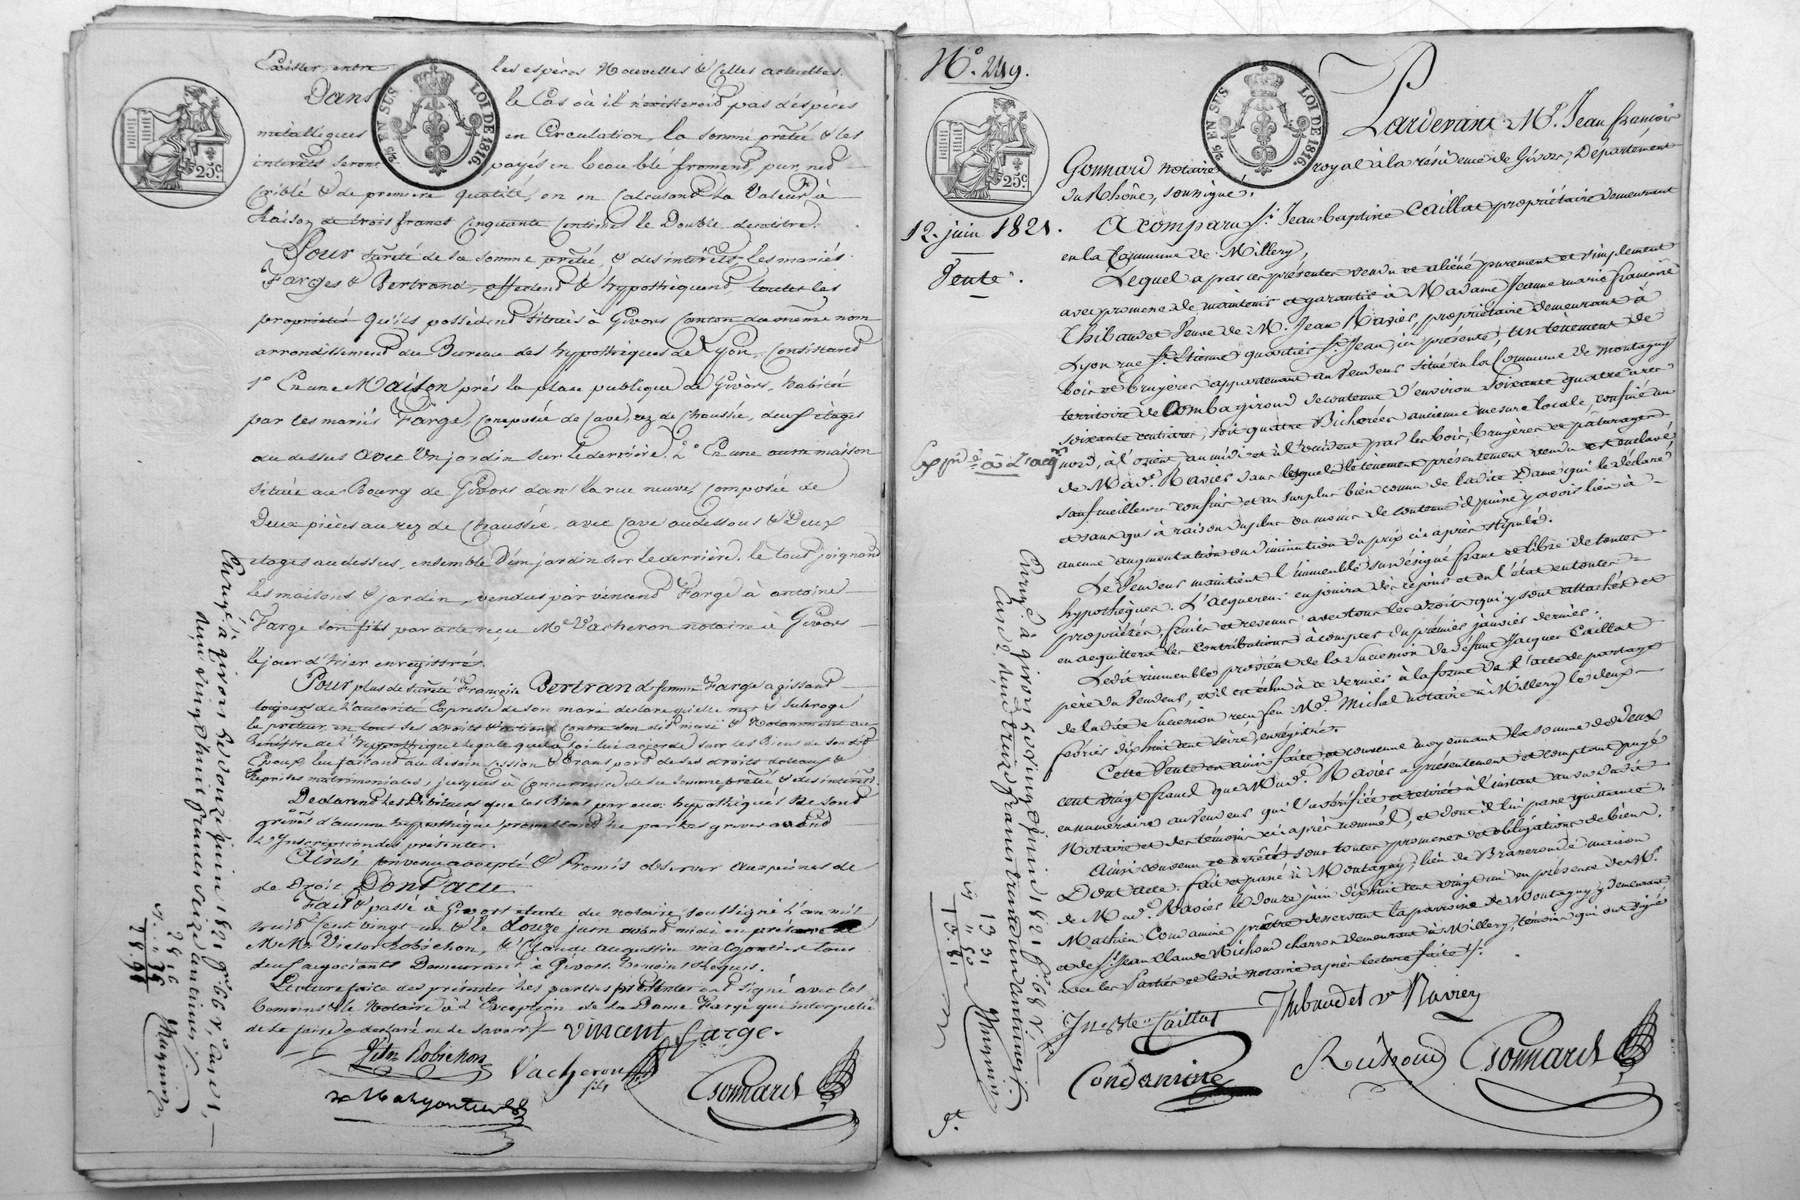 Exister entre les espèces Nouvelles & Celles actuelles.
Dans le Cas où il n'existeroit pas d'espèces
métalliques en Circulation, la somme prêtée & les
interêts seront payés en beau blé froment, pur, net
Criblé & de première qualité, en en Calculant La Valeur à
Raison de trois francs Cinquante Centimes le Double décalitre.
Pour sureté de la somme prêtée, & des interêts, les mariés
Farges & Bertrand, affectent & hypothèquent toutes les
propriétés qu'ils possèdent Situés à Givors Canton du même nom
arrondissement du Bureau des hypothèques de Lyon, Consistant
1° En une Maison près la place publique de Givors, habitée
par les mariés Farge, Composée de Cave, rez de Chaussée, deux étages
au dessus avec Un jardin sur le derrière. 2° En une autre maison
Située au Bourg de Givors dans la rue neuve, Composée de
Deux pièces au rez de Chaussée, avec Cave au dessous & Deux
étages au dessus, ensemble D'un jardin sur le derrière, le tout joignant
les maisons & jardin, vendus par vincent Farge à antoine
Farge son fils par acte reçu Me Vacheron notaire à Givors
le jour d'hier enregistré.
Pour plus de sureté Françoise Bertrand femme Farge agissant
toujours de l'autorité Expresse de son mari déclare qu'elle met & subroge
le prêteur, en tout ses droits & actions contre son dit mari & Notamment au
Bénéfice de l'hypothèque légale que la loi lui accorde sur les Biens de son dit
Epoux lui faisant au Besoin Cession & transport de ses droits dotaux &
Reprises matrimoniales, jusques à Concurrence de la Somme prêtée & des interêts
Declarent les Débiteurs que les Biens par eux hypothéqués Ne sont
grévés d'aucune hypothèque promettant ne pas les grever avant
L'Inscription des présentes.
Ainsi convenu accepté & Promis observer aux peines de
de Droit Dont acte
Fait & passé à Givors étude du notaire soussigné L'an mil
huit Cent vingt un & le Douze juin avant midi en présence de
Mr Victor Robichon, & Claude augustin malgontier tous
deux négociants Demeurant à Givors. témoins Requis.
Lecture faite des présentes les parties ont signé avec les
temoins & le Notaire à l'Exception de la Dame Farge qui interpellée
de le faire a déclaré ne le savoir
vincent farge.
Victor Robichon
Vacheron fils
Gonnard
EN SUS
LOI DE 1816.
25c
N° 249.
12. juin 1821.
Vente.
25c
EN SUS
LOI DE 1816.
Pardevant Me Jean françois
Gonnard notaire royal à la résidence de Givors, Département
du Rhône, soussigné.
A comparu Sr. Jean baptiste Caillat propriétaire demeurant
en la Commune de Millery,
Lequel a par ces présentes vendu et aliéné purement et simplement
avec promesse de maintenir et garantir à Madame Jeanne marie françoise
Thibaudet Veuve de Mr. Jean Ravier propriétaire demeurant à
Lyon rue St. Etienne quartier St. Jean, ici présente, Un tènement de
bois et bruyères appartenant au Vendeur situé en la Commune de montagny
territoire de Combagiroud de contenue d'environ soixante quatre ares
soixante centiares, soit quatre Bicherées ancienne mesure locale, confiné au
nord, à l'orient au midi et à l'occident par les bois, bruyères et pâturages
de Made. Ravier dans lesquels le tènement présentement vendu est enclavé,
sauf meilleurs confins et au surplus bien connu de ladite Dame qui le déclare
et sans qu'à raison du plus ou moins de contenue il puisse y avoir lieu à
aucune augmentation ou diminution du prix ci après stipulé.
Le Vendeur maintient l'immeuble sus désigné franc et libre de toutes
hypothèques. L'acquereur en jouira dès ce jour et en l'état en toute
propriété, fruits et revenus avec tous les droits qui y sont attachés et
en acquittera les Contributions à compter du premier janvier dernier.
Ledit immeuble provient de la succession de défunt Jacques Caillat
père du Vendeur, et il est échu à ce dernier à la forme de l'acte de partage
de ladite succession reçu feu Me. Michel notaire à Millery le deux
février dix huit cent seize, enregistré.
Cette Vente est ainsi faite et consentie moyennant la somme de Deux
cent vingt francs que Made. Ravier a présentement et comptant payé
en numéraire au Vendeur qui l'a vérifiée et retirée à l'instant au vu dudit
Notaire et des témoins ci après nommés, et dont il lui passe quittance.
Ainsi convenu et arrêté sous toutes promesses et obligations de biens.
Dont acte. fait et passé à Montagny, lieu de maison
de Made. Ravier le douze juin dix huit cent vingt un en présence de Mr.
Mathieu Condamine prêtre desservant la paroisse de Montagny y demeurant
et de Sr. Jean Claude Richoud charron demeurant à Millery, témoins qui ont signé
avec les Parties et le dit notaire après lecture faite.
Jn Bte Caillat
Thibaudet ve Ravier
Condamine
Richoud
Gonnard